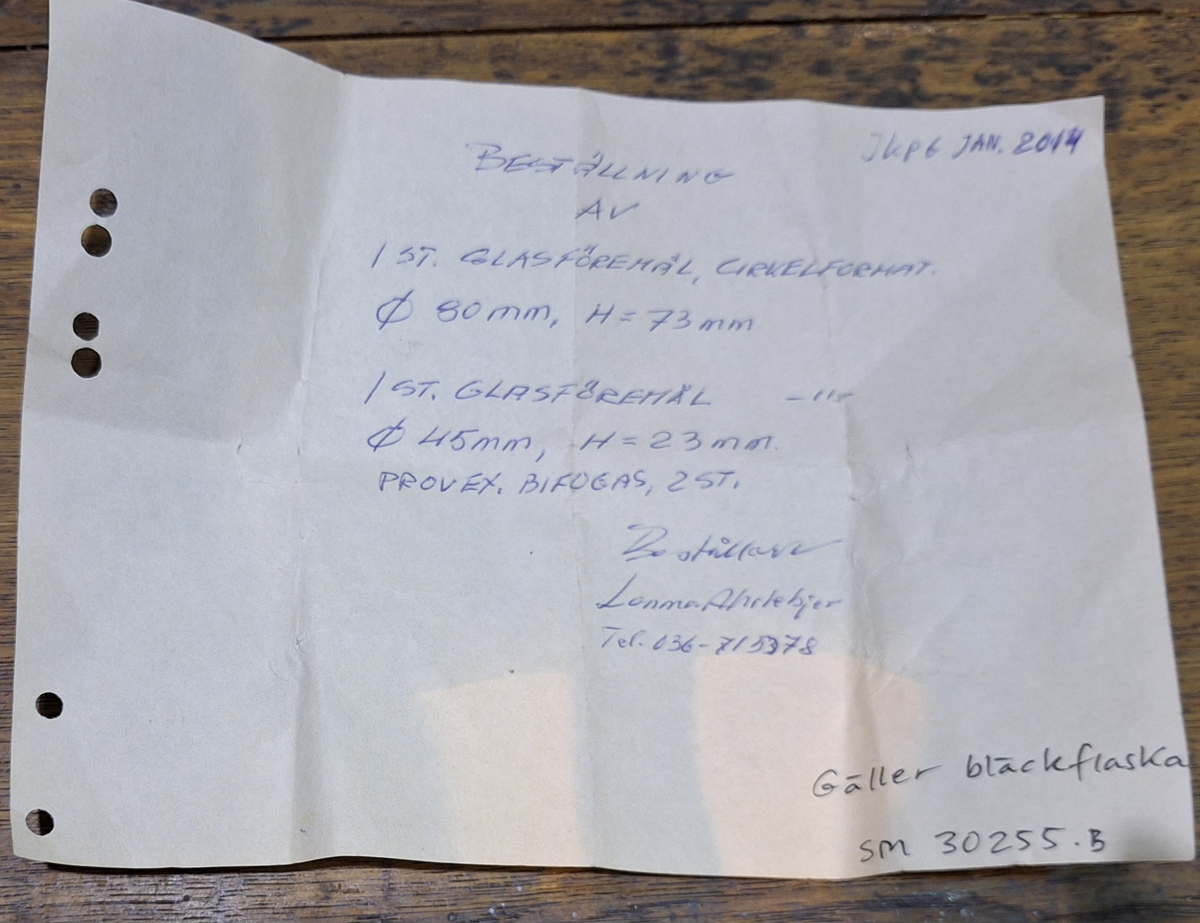 JKPG JAN. 2014
BESTÄLLNING
AV
1 ST. GLASFÖREMÅL, CIRKELFORMAT.
Ø 80mm, H=73mm
1 ST. GLASFÖREMÅL -"-
Ø 45mm, H=23mm.
PROVEX. BIFOGAS, 2 ST.
Beställare
Tel. 036-715378
Gäller bläckflaska
SM 30255.B